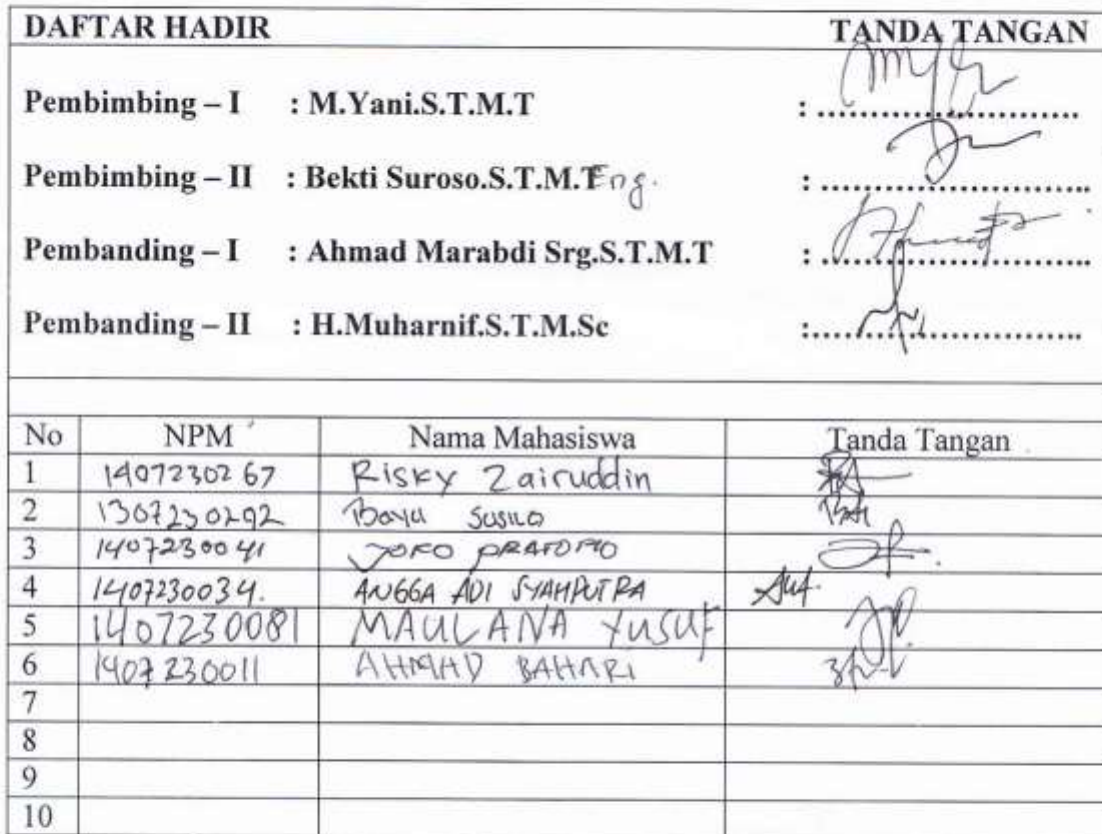 DAFTAR HADIR TANDA TANGAN
Pembimbing – I : M.Yani.S.T.M.T : ..............................
Pembimbing – II : Bekti Suroso.S.T.M.T Eng. : ..............................
Pembanding – I : Ahmad Marabdi Srg.S.T.M.T : ..............................
Pembanding – II : H.Muharnif.S.T.M.Sc :..............................
No NPM Nama Mahasiswa Tanda Tangan
1 1407230267 Risky Zairuddin
2 1307230292 Bayu Susilo
3 1407230041 JOKO PRATOMO
4 1407230034. ANGGA ADI SYAHPUTRA
5 1407230081 MAULANA YUSUF
6 1407230011 AHMAD BAHARI
7
8
9
10